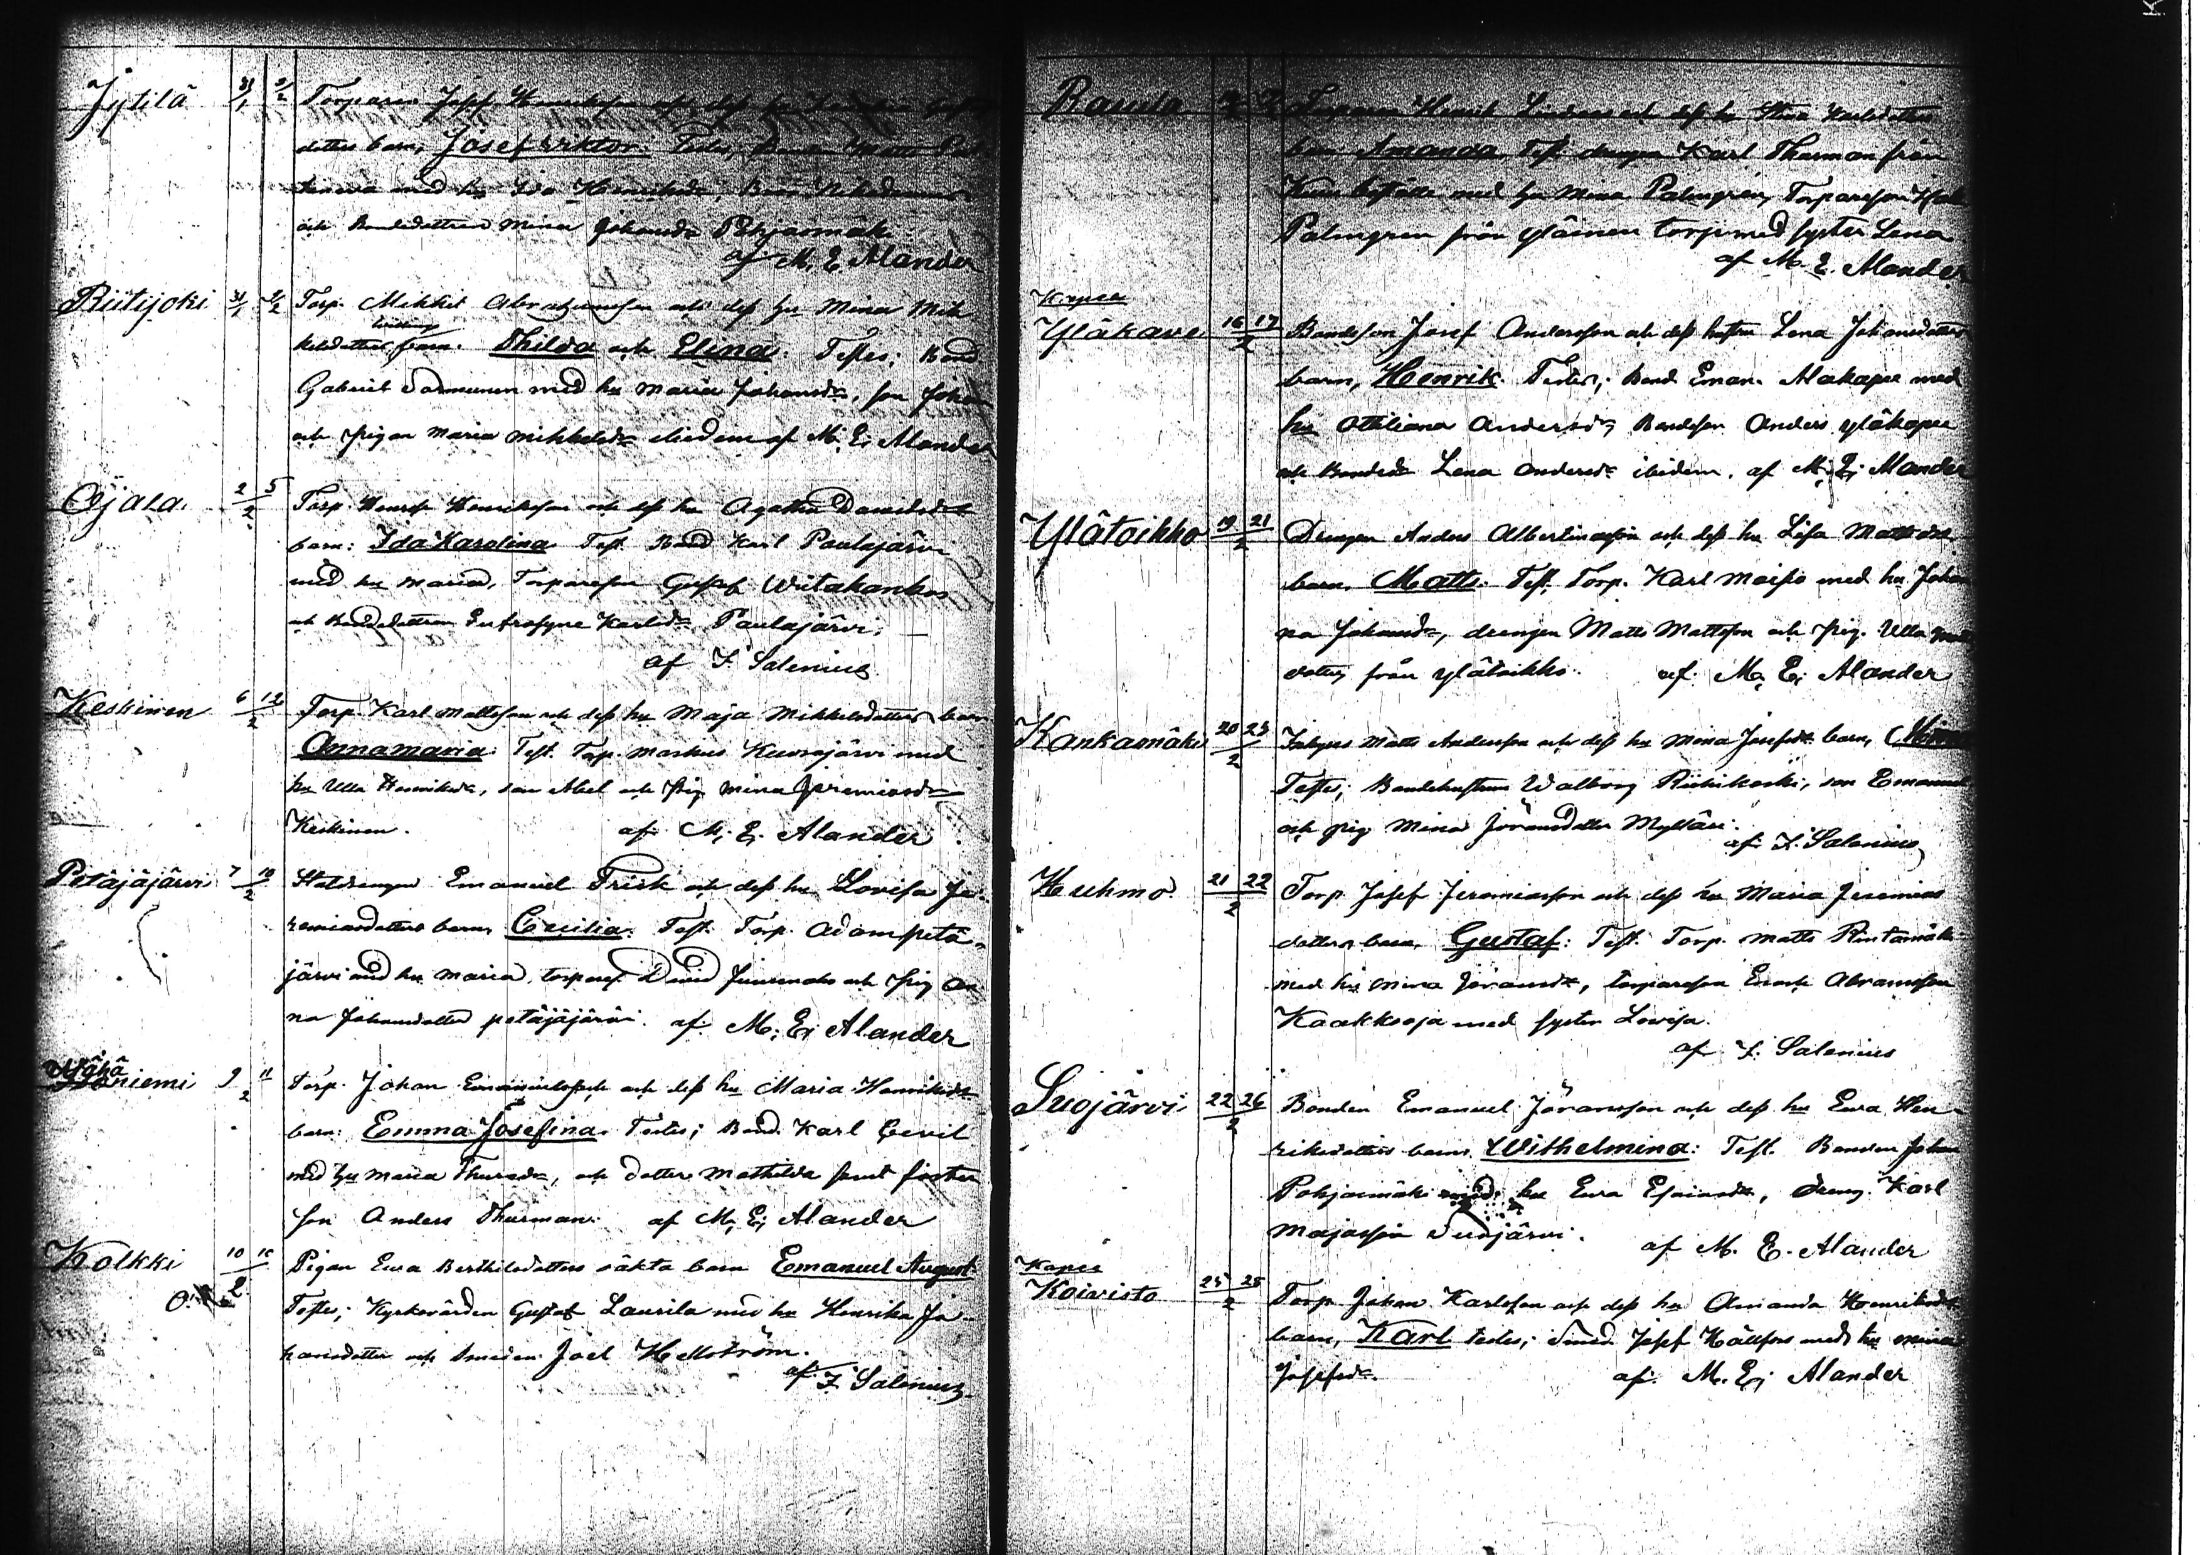 Jytilä 31/1 2/2 Torparen Josef
dotters barn, Josef Wiktor. Testes,
med hu Ida Henriksdr,
och Bondedottren Mina Johansdr Pohjasmäki
af M. E. Alander
Riitijoki 31/1 2/2 Torp. Mikkel Abrahamsson och dess hu Mina Mik
kelsdotters barn. Thilda och Elina. Testes; Bond
Gabriel med hu Maria Johansdr, son Johan
och pigan Maria Mikkelsdr ibidem af M. E. Alander
Ojala. 2 5/2 Torp. Henrik Henriksson och dess hu Agatha Davidsdr
barn: Ida Karolina Test. Bond Karl Paulajärvi
med hu Maria, Torpareson Gustaf Wiitakankas
och Bondedottren Eufrosyne Karlsdr Paulajärvi.
af F. Salenius
Keskinen 6 12/2 Torp. Karl Mattsson och dess hu Maja Mikkelsdotters barn
Annamaria. Test. Torp. Markus Kuorajärvi med
hu Ulla Henriksdr, son Abel och pig Mina Jeremiasdr
Keskinen. af M. E. Alander
Petäjäjärvi 7 10/2 Statdrengen Emanuel Frisk och dess hu Lovisa Je-
remiasdotters barn, Cecilia. Test. Torp. Adam petä-
järvi med hu Maria, torpares. David och pig An
na Johansdotter petäjäjärvi. af M. E. Alander
niemi 9 11/2 Torp. Johan Emanuelsson och dess hu Maria Henriksdr
barn: Emma Josefina. Testes; Bond. Karl
med hu Maria Thuresdr, och dotter Mathilda samt foster
son Anders Thurman. af M. E. Alander
Kolkki 10 15/2 Pigan Eva Berthilsdotters oäkta barn Emanuel August.
Testes; Kyrkovärden Gustaf Laurila med hu Henrika Jo-
hansdotter och smeden Joel Hellström.
af F. Salenius
Rauda Henrik Lindroos och dess hu Stina Karlsdotters
barn Amanda, Test. drengen Karl Thurman från
med hu Mina Palmgren, Torpareson
Palmgren från yläinen torp med syster Lena
af M. E. Alander
Kapee
Yläkave 16 17/2 Bondeson Josef Andersson och dess hustru Lena Johansdotters
barn, Henrik. Testes; Bond Eman. Alakapee med
hu Ottiliana Andersdr, Bondeson Anders yläkapee
och Bondedr Lena Andersdr ibidem. af M. E. Alander
Ylätoikko 19 21/2 Drengen Anders Albertinasson och dess hu Lisa Mattsdrs
barn, Matts. Test. Torp. Karl Maisto med hu Johan
na Johansdr, drengen Matts Mattsson och pig. Ulla
dotter från ylätoikko. af M. E. Alander
Kankamäki 20 23/2 Inhyses Matts Andersson och dess hu Mina Josefsdr barn,
Testes; Bondehustrun Walborg Riihikoski, son Emanuel
och pig Mina Göransdotter Myllari.
af F. Salenius
Huhmo. 21 22/2 Torp. Josef Jeremiasson och dess hu Maria Jeremias
dotters barn, Gustaf: Test. Torp. Matts Rintamäki
med hu Mina Göransdr, torpareson Enok Abramsson
Kaakkooja med syster Lovisa.
af F. Salenius
Suojärvi 22 26/2 Bonden Emanuel Göransson och dess hu Eva Hen-
riksdotters barn Wilhelmina: Test. Bonden Johan
Pohjasmäki med hu Eva Esaiasdr, dreng. Karl
Majasson Suojärvi. af M. E. Alander
Kapee
Koivisto 25 28/2 Torp. Johan Karlsson och dess hu Amanda Henriksdr
barn, Karl testes; Smed Josef Hällfors med hu Mina
Josefsdr. af M. E. Alander